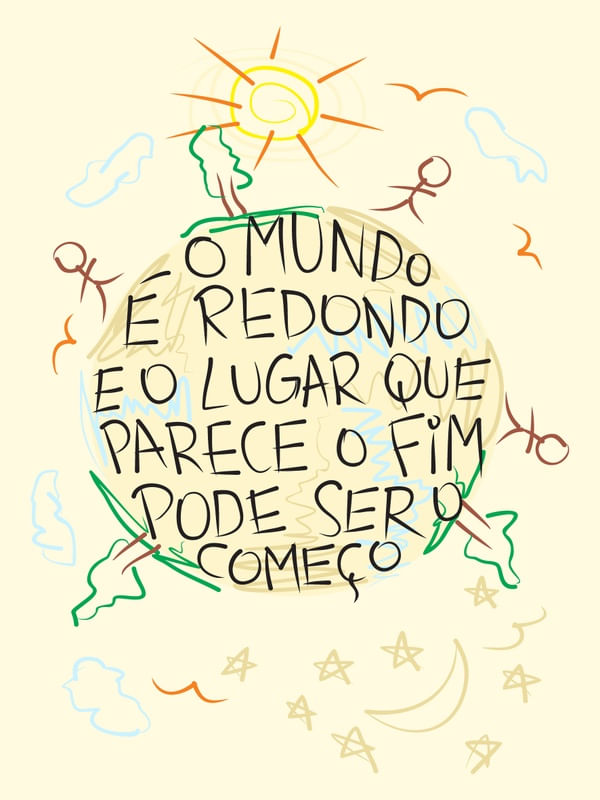 O MUNDO
É REDONDO
E O LUGAR QUE
PARECE O FiM
PODE SER O
COMEÇO